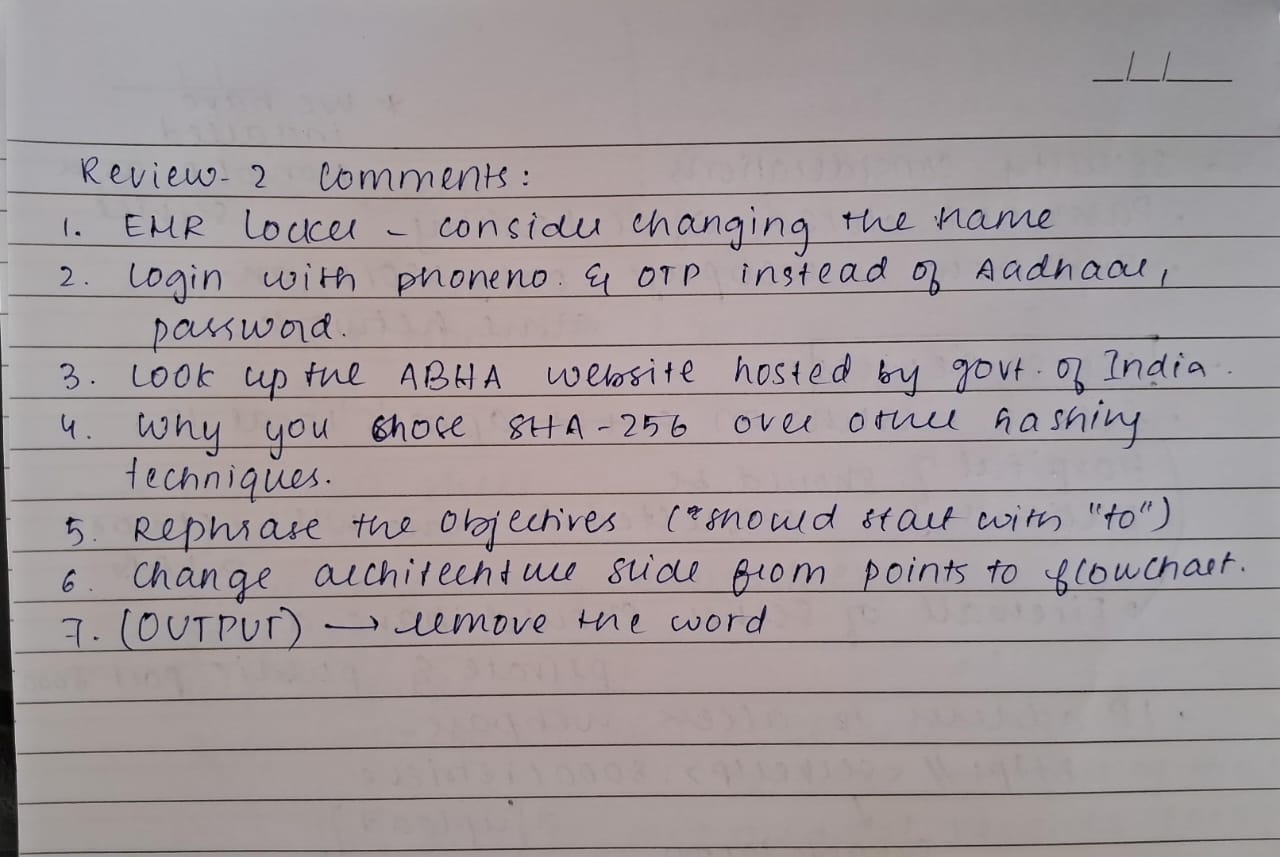 Review-2 Comments:
1. EMR Locker - consider changing the name
2. Login with phoneno. & OTP instead of Aadhaar,
password.
3. Look up the ABHA website hosted by govt. of India.
4. Why you chose SHA-256 over other hashing
techniques.
5. Rephrase the Objectives (*should start with "to")
6. Change architechture slide from points to flowchart.
7. (OUTPUT) → remove the word